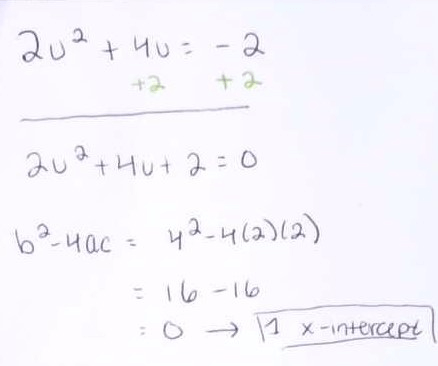 2u² + 4u = -2
+2 +2
2u² + 4u + 2 = 0
b²-4ac = 4²-4(2)(2)
= 16 - 16
= 0 → 1 x-intercept